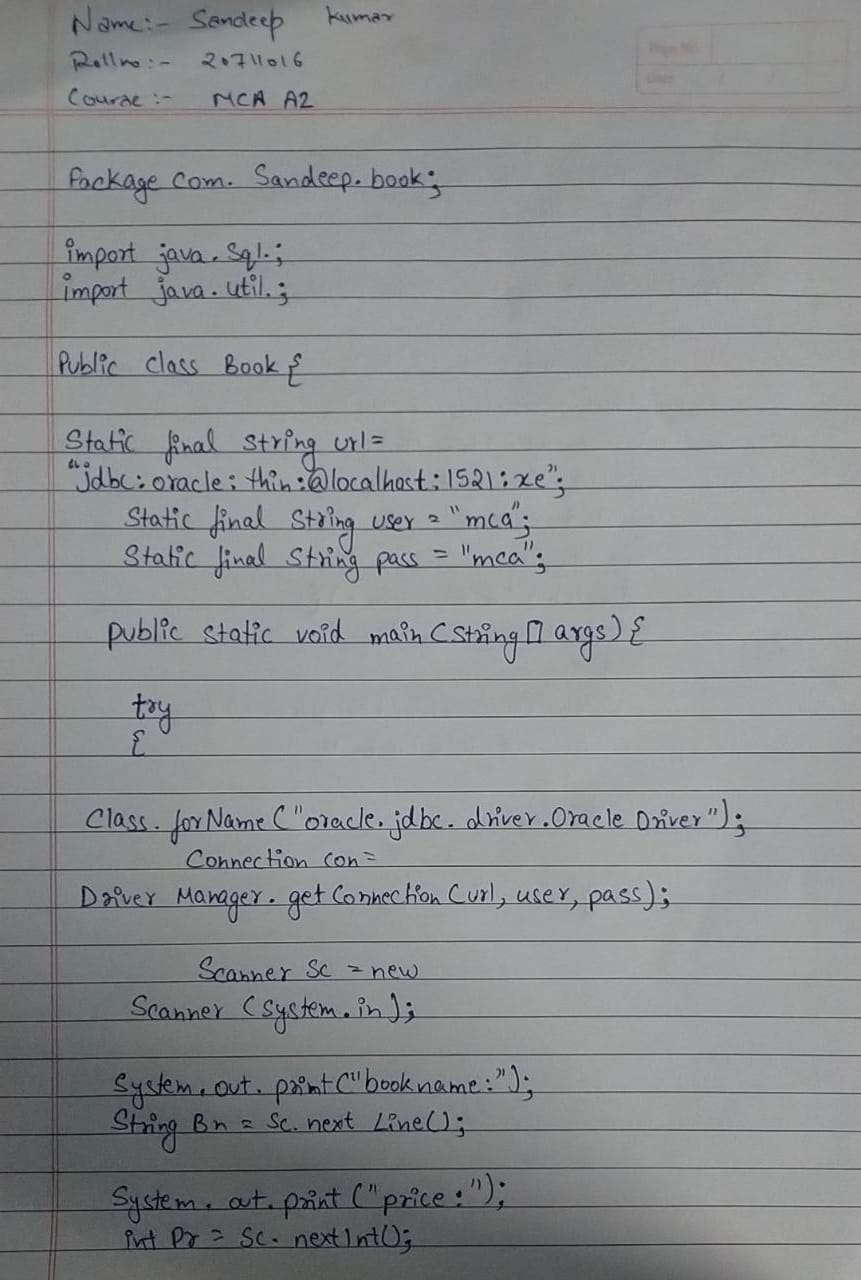 Name:- Sandeep Kumar
Rollno:- 20711016
Course:- MCA A2
Package com. Sandeep. book;
import java. Sql.;
import java. util.;
Public class Book {
Static final string url=
"jdbc: oracle: thin:@localhost: 1521: xe";
Static final String user = "mca";
Static final String pass = "mca";
public static void main (string[] args) {
try
{
Class. forName ("oracle. jdbc. driver. Oracle Driver");
Connection con=
Driver Manager. get Connection (url, user, pass);
Scanner Sc = new
Scanner (system. in);
System. out. print ("bookname:");
String Bn = Sc. next Line();
System. out. print ("price:");
int Pr = Sc. nextInt();